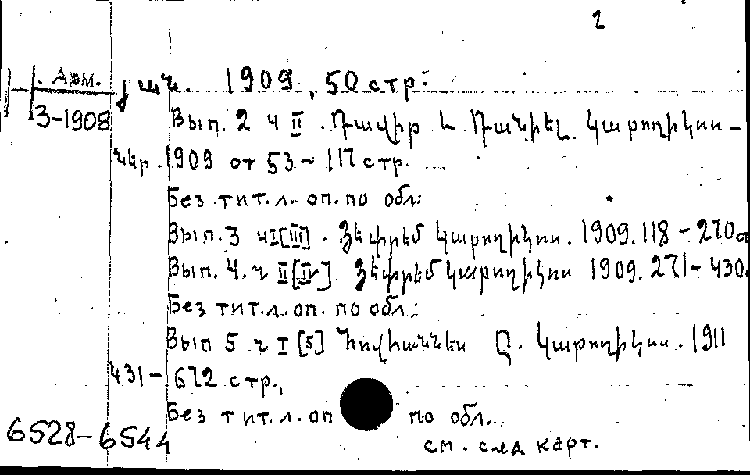 2
Арм.
3-1908
ան. 1909, 50 стр.
Вып. 2 ч II. Դավիթ և Դանիել կաթողիկոս-
ներ. 1909 от 53-117 стр.
Без тит. л. оп. по обл.
Вып. 3 ч I [III]. Յեփրեմ կաթողիկոս. 1909. 118-270
Вып. 4. ч II [IV] Յեփրեմ կաթողիկոս 1909. 271-430.
Без тит. л. оп. по обл.
Вып 5 ч I [5] Հովհաննես Ը. կաթողիկոս. 1911
431-672 стр.,
Без тит. л. оп по обл.
6528-6544
см. след карт.